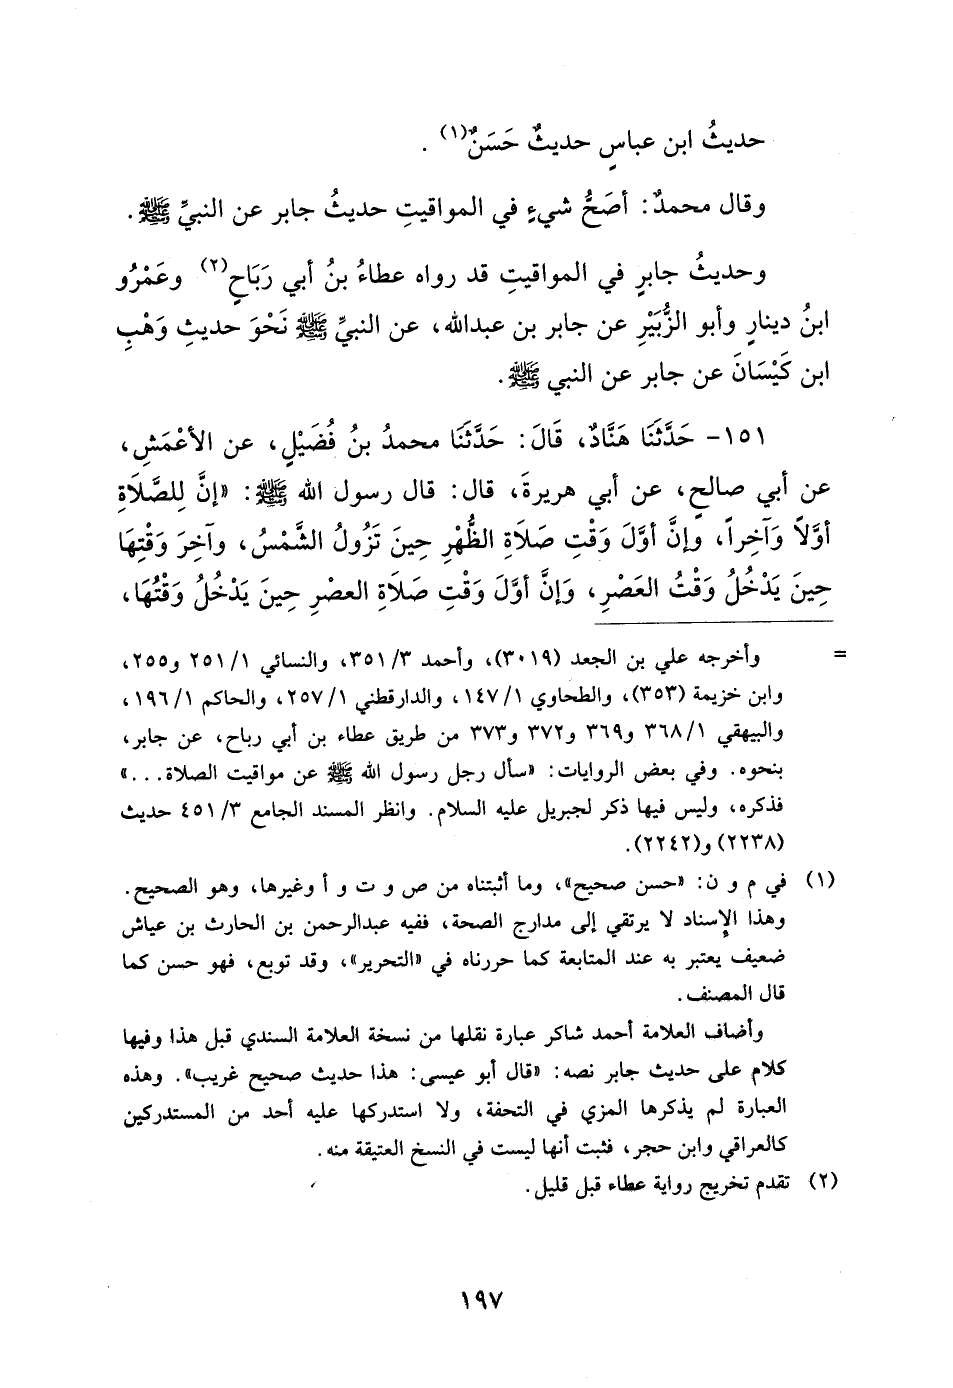 حديثُ ابن عباسٍ حديثٌ حَسَنٌ(١) .
وقال محمدٌ: أصَحُّ شيءٍ في المواقيتِ حديثُ جابر عن النبيِّ ﷺ.
وحديثُ جابرٍ في المواقيتِ قد رواه عطاءُ بنُ أبي رَبَاحٍ(٢) وعَمْرُو
ابنُ دينارٍ وأبو الزُّبَيْرِ عن جابر بن عبدالله، عن النبيِّ ﷺ نَحْوَ حديثِ وَهْبِ
ابن كَيْسَانَ عن جابر عن النبي ﷺ.
١٥١- حَدَّثَنَا هَنَّادٌ، قَالَ: حَدَّثَنَا محمدُ بنُ فُضَيْلٍ، عن الأعْمَشِ،
عن أبي صالحٍ، عن أبي هريرةَ، قال: قال رسول الله ﷺ: «إنَّ لِلصَّلَاةِ
أوَّلاً وَآخِراً، وإنَّ أوَّلَ وَقْتِ صَلَاةِ الظُّهْرِ حِينَ تَزُولُ الشَّمْسُ، وآخِرَ وَقْتِهَا
حِينَ يَدْخُلُ وَقْتُ العَصْرِ، وَإنَّ أوَّلَ وَقْتِ صَلَاةِ العصْرِ حِينَ يَدْخُلُ وَقْتُهَا،
= وأخرجه علي بن الجعد (٣٠١٩)، وأحمد ٣/ ٣٥١، والنسائي ١/ ٢٥١ و٢٥٥،
وابن خزيمة (٣٥٣)، والطحاوي ١/ ١٤٧، والدارقطني ١/ ٢٥٧، والحاكم ١/ ١٩٦،
والبيهقي ١/ ٣٦٨ و٣٦٩ و٣٧٢ و٣٧٣ من طريق عطاء بن أبي رباح، عن جابر،
بنحوه. وفي بعض الروايات: «سأل رجل رسول الله ﷺ عن مواقيت الصلاة...»
فذكره، وليس فيها ذكر لجبريل عليه السلام. وانظر المسند الجامع ٣/ ٤٥١ حديث
(٢٢٣٨) و(٢٢٤٢).
(١) في م و ن: «حسن صحيح»، وما أثبتناه من ص و ت و أ وغيرها، وهو الصحيح.
وهذا الإسناد لا يرتقي إلى مدارج الصحة، ففيه عبدالرحمن بن الحارث بن عياش
ضعيف يعتبر به عند المتابعة كما حررناه في «التحرير»، وقد توبع، فهو حسن كما
قال المصنف.
وأضاف العلامة أحمد شاكر عبارة نقلها من نسخة العلامة السندي قبل هذا وفيها
كلام على حديث جابر نصه: «قال أبو عيسى: هذا حديث صحيح غريب». وهذه
العبارة لم يذكرها المزي في التحفة، ولا استدركها عليه أحد من المستدركين
كالعراقي وابن حجر، فثبت أنها ليست في النسخ العتيقة منه.
(٢) تقدم تخريج رواية عطاء قبل قليل.
١٩٧